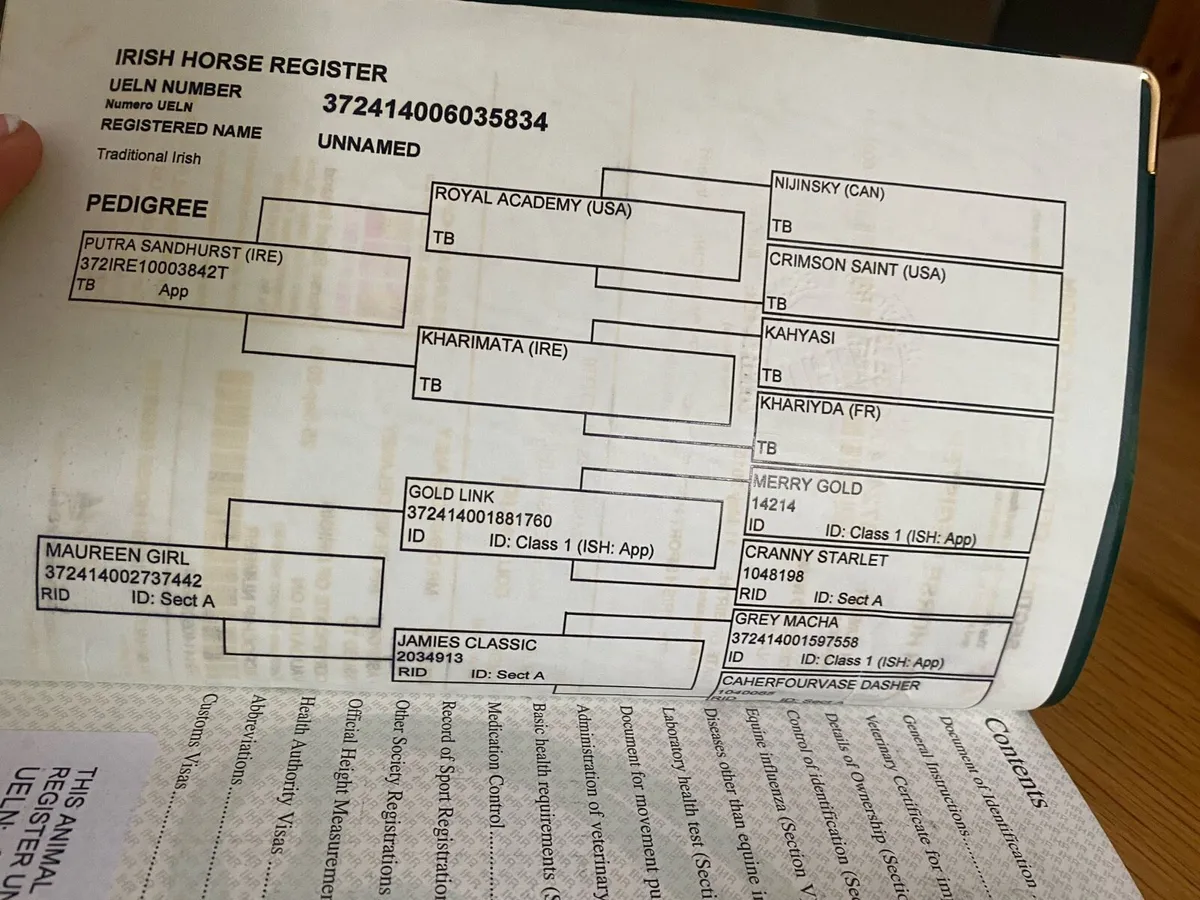 IRISH HORSE REGISTER
UELN NUMBER
Numero UELN
372414006035834
REGISTERED NAME
UNNAMED
Traditional Irish
PEDIGREE
PUTRA SANDHURST (IRE)
372IRE10003842T
TB App
ROYAL ACADEMY (USA)
TB
NIJINSKY (CAN)
TB
CRIMSON SAINT (USA)
TB
KHARIMATA (IRE)
TB
KAHYASI
TB
KHARIYDA (FR)
TB
MAUREEN GIRL
372414002737442
RID ID: Sect A
GOLD LINK
372414001881760
ID ID: Class 1 (ISH: App)
MERRY GOLD
14214
ID ID: Class 1 (ISH: App)
CRANNY STARLET
1048198
RID ID: Sect A
JAMIES CLASSIC
2034913
RID ID: Sect A
GREY MACHA
372414001597558
ID ID: Class 1 (ISH: App)
CAHERFOURVASE DASHER
RID ID: Sect A
Contents
Document of Identification
General Instructions..........
Veterinary Certificate for
Details of Ownership (Sectio
Control of identification (Sec
Equine influenza (Section V
Diseases other than equine i
Laboratory health test (Secti
Document for movement pu
Administration of veterinary
Basic health requirements (S
Medication Control..........
Record of Sport Registration
Other Society Registrations
Official Height Measuremen
Health Authority Visas ........
Abbreviations..........
Customs Visas..........
THIS ANIMAL
REGISTER UN
UELN: